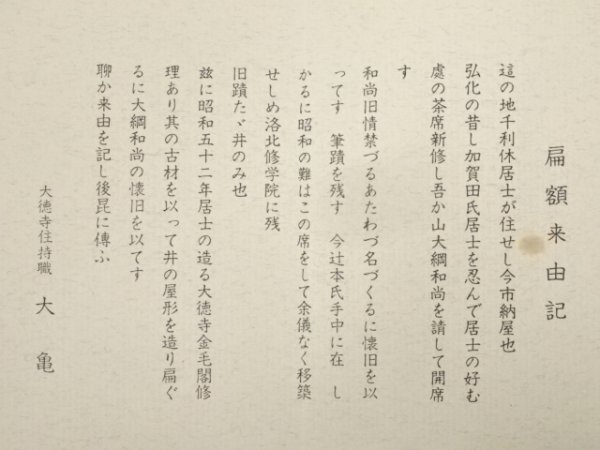 扁額来由記
這の地千利休居士が住せし今市納屋也
弘化の昔し加賀田氏居士を忍んで居士の好む
處の茶席新修し吾か山大綱和尚を請して開席
す
和尚旧情禁づるあたわづ名づくるに懐旧を以
ってす　筆蹟を残す　今辻本氏手中に在　し
かるに昭和の難はこの席をして余儀なく移築
せしめ洛北修学院に残
旧蹟たゞ井のみ也
玆に昭和五十二年居士の造る大徳寺金毛閣修
理あり其の古材を以って井の屋形を造り扁ぐ
るに大綱和尚の懐旧を以てす
聊か来由を記し後昆に傳ふ
大徳寺住持職　大亀